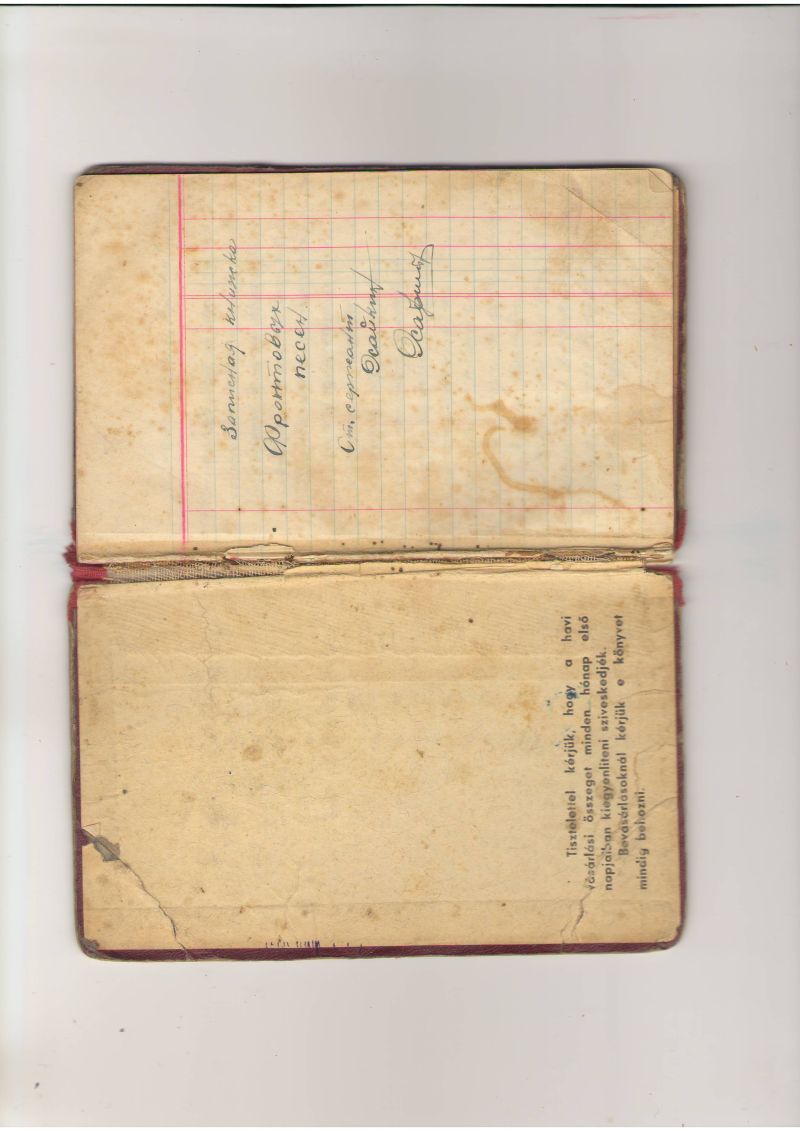 Tisztelettel kérjük, hogy a havi
vásárlási összeget minden hónap első
napjaiban kiegyenlíteni sziveskedjék.
Bevásárlásoknál kérjük e könyvet
mindig behozni.
Записная книжка
Фронтовых
песен.
Ст. сержант